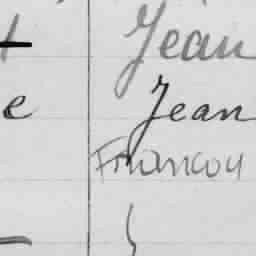 Jean
e Jean
Francou